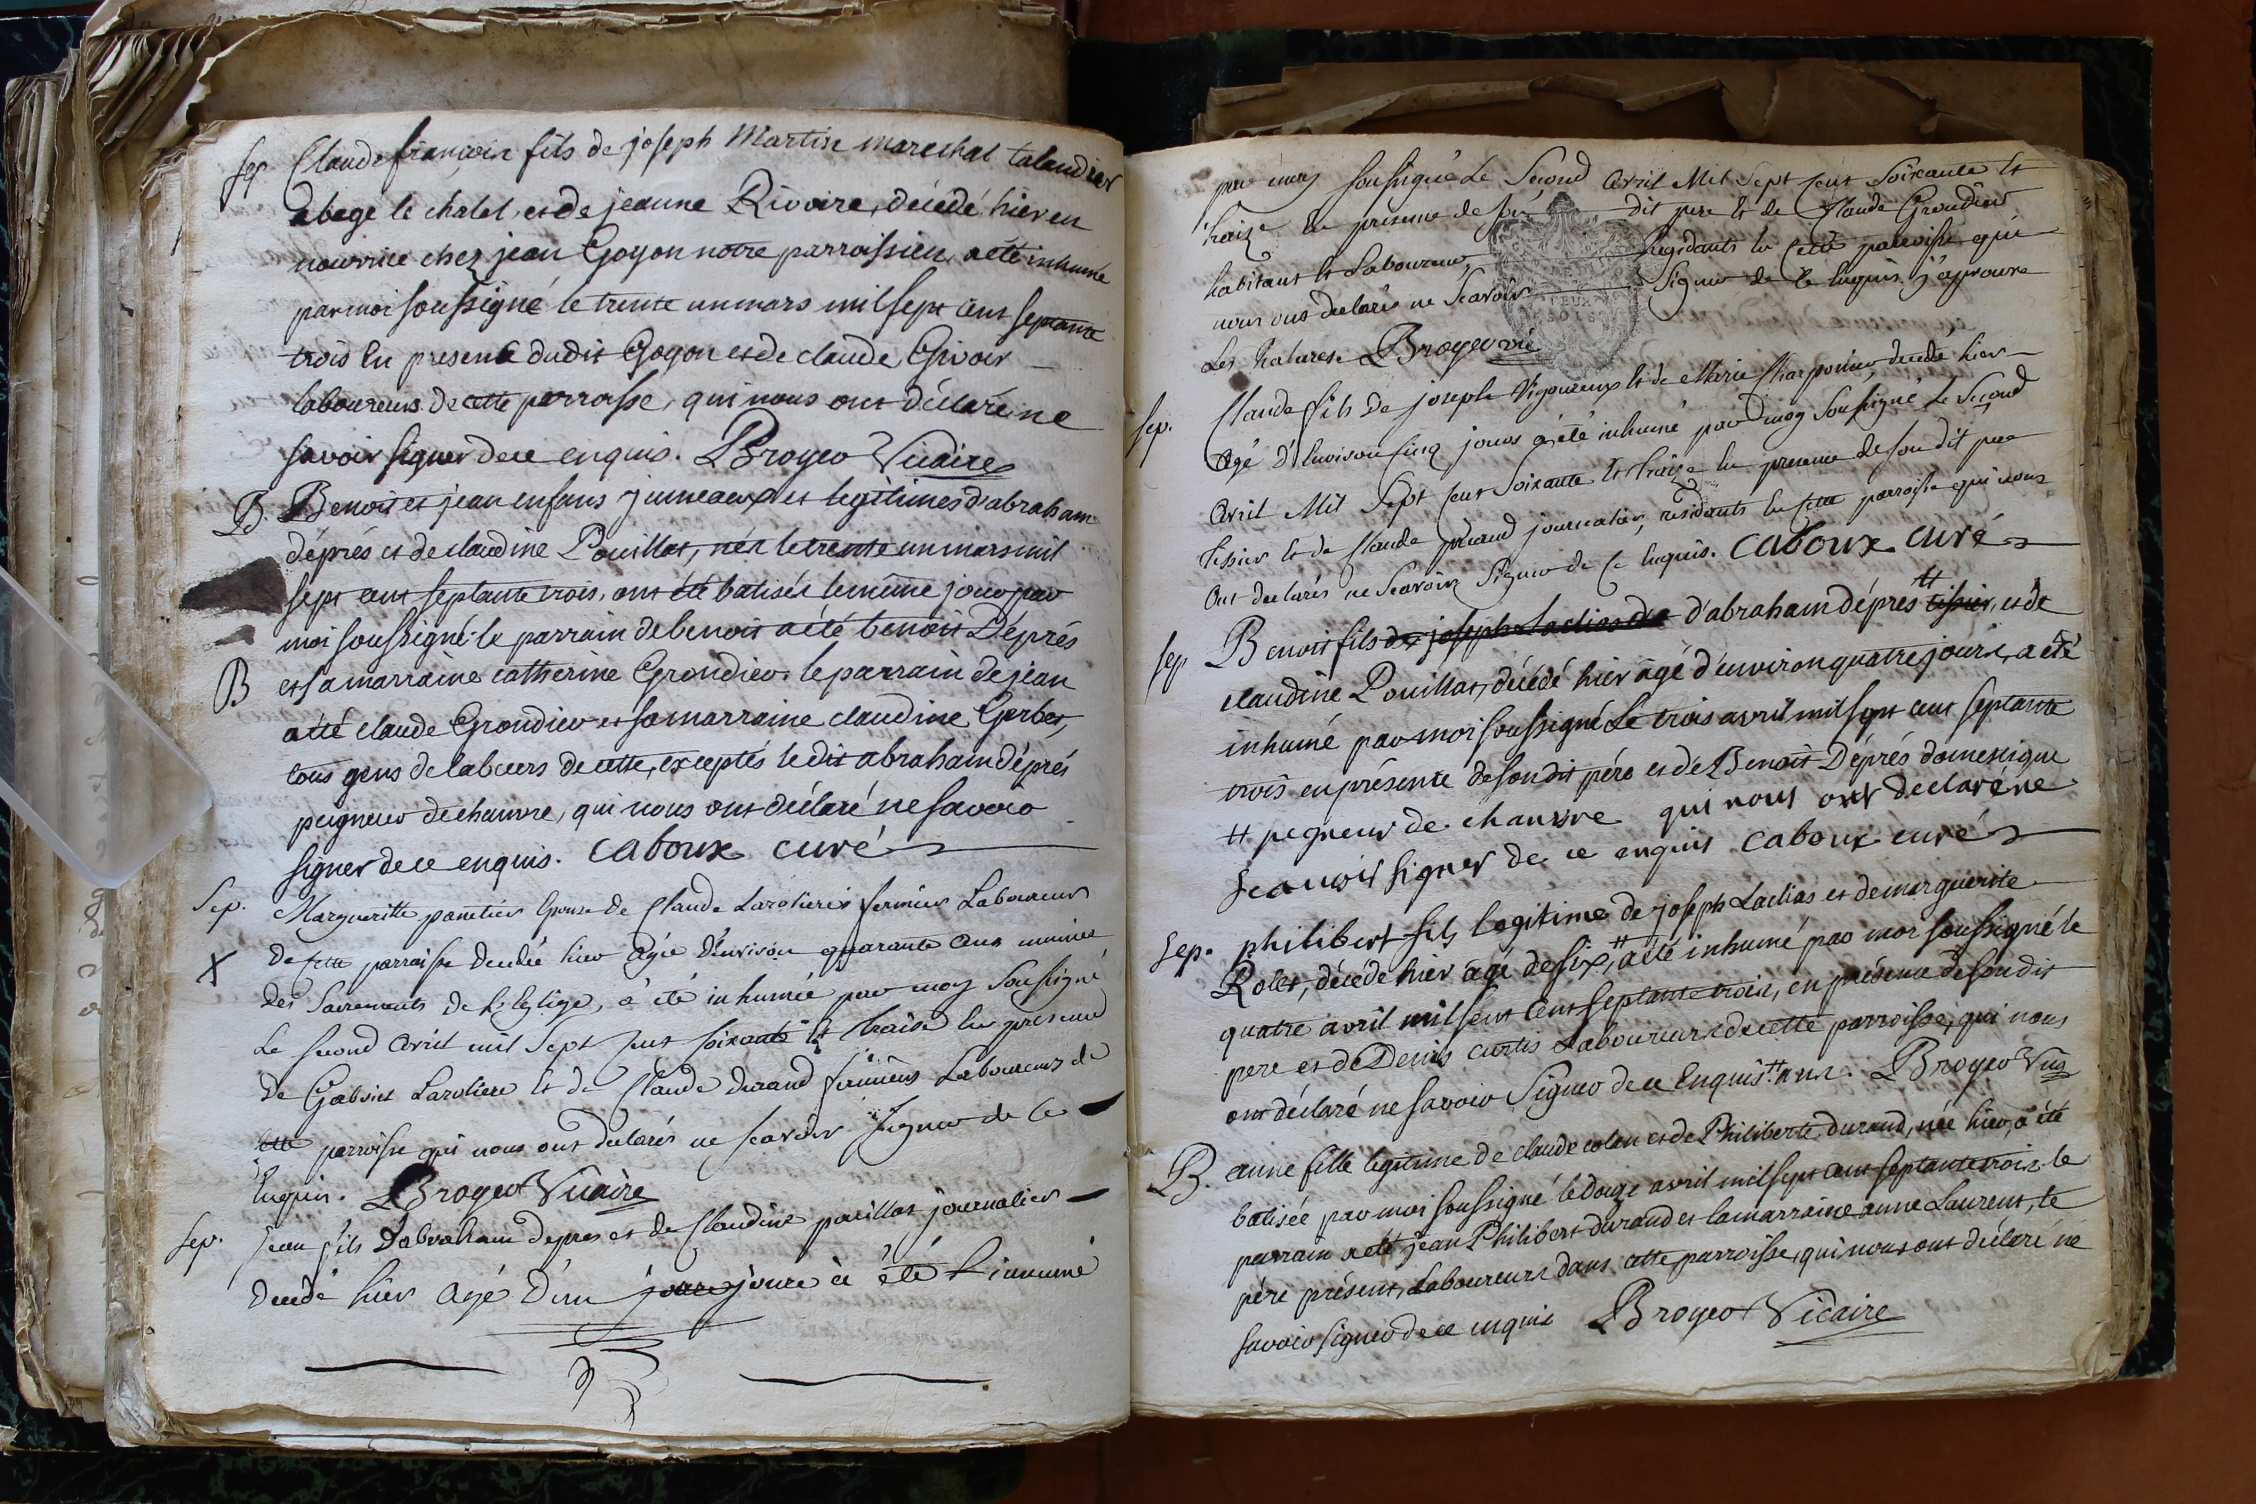 Sep. Claude françois fils de joseph Martin marechal talandier
abage le chatel, et de jeanne Rivoire, décédé hier en
nourrice chez jean Goyon notre parroissien, a été inhumé
par moi soussigné le trente un mars mil sept cent septante
trois En presence dudit Goyon et de claude
laboureurs de cette parroisse, qui nous ont déclaré ne
savoir signer de ce enquis. Broyer Vicaire
B. Benoit et jean enfans jumeaux et legitimes d'abraham
déprés et de claudine Pouillat, nés le trente un mars mil
sept cent septante trois, ont été batisés le même jour par
moi soussigné. le parrain de benoit a été benoit Déprés
B et sa marraine catherine Grondier. le parrain de jean
a été claude Grondier et sa marraine claudine Gerbet,
tous gens de labeurs de cette, exceptés le dit abraham déprés
peigneur de chanvre, qui nous ont déclaré ne savoir
signer de ce enquis. Caboux curé
Sep. Margueritte panetier Epouse de Claude Larotiere fermier Laboureur
X de cette parroisse decedée hier agée D'environ quarante ans munie
des Sacrements de L'Eglize, a été inhumée par moy Soussigné
Le second avril mil Sept Cent soixante et traise en presence
de Gabriel Larotiere et de Claude durand fermiers Laboureurs de
cette parroisse qui nous ont declarés ne scavoir Signer de ce
Enquis. Broyer Vicaire
Sep. jean fils D'abraham depres et de Claudine pouillat journalier
decedé hier agé D'un jour jour a été inhumé
par moy soussigné Le Second avril Mil Sept Cent Soixante et
traize En presence de son dit pere et de Claude Grondier
habitant et Laboureur Residants en Cette paroisse qui
nous ont declarés ne Scavoir Signer de Ce Enquis j'aprouve
Les Ratures. Broyer vic
Sep. Claude fils de joseph Vigoureux et de Marie Charpentier decedé hier
agé d'Environ Cinq jours a été inhumé par moy Soussigné Le Second
avril Mil Sept Cent Soixante et traize En presence de son dit pere
tessier et de Claude journalier, residants En Cette parroisse qui nous
Ont declarés ne Scavoir Signer de Ce Enquis. Caboux Curé
Sep Benoit fils de joseph Laclias et de d'abraham déprés # tissier, et de
claudine Pouillat, décédé hier âgé d'environ quatre jours, a été
inhumé par moi soussigné Le trois avril mil sept cent septante
trois en présence de son dit père et de Benoit Déprés domestique
# pegneur de chanvre qui nous ont declaré ne
scavoir signer de ce enquis Caboux curé
Sep. philibert fils legitime de joseph Laclias et de marguerite
Rolet, décédé hier âgé de six, # a été inhumé par moi soussigné le
quatre avril mil sept cent septante trois, en présence de son dit
pere et de Denis curtis Laboureurs de cette parroisse, qui nous
ont déclaré ne savoir Signer de ce Enquis. # ans. Broyer Vic
B. anne fille legitime de claude colon et de Philiberte durand, née hier, a été
batisée par moi soussigné le douze avril mil sept cent septante trois. le
parrain a été jean Philibert durand et la marraine anne Laurent, le
pére présent, Laboureurs dans cette parroisse, qui nous ont déclaré ne
savoir signer de ce enquis Broyer Vicaire